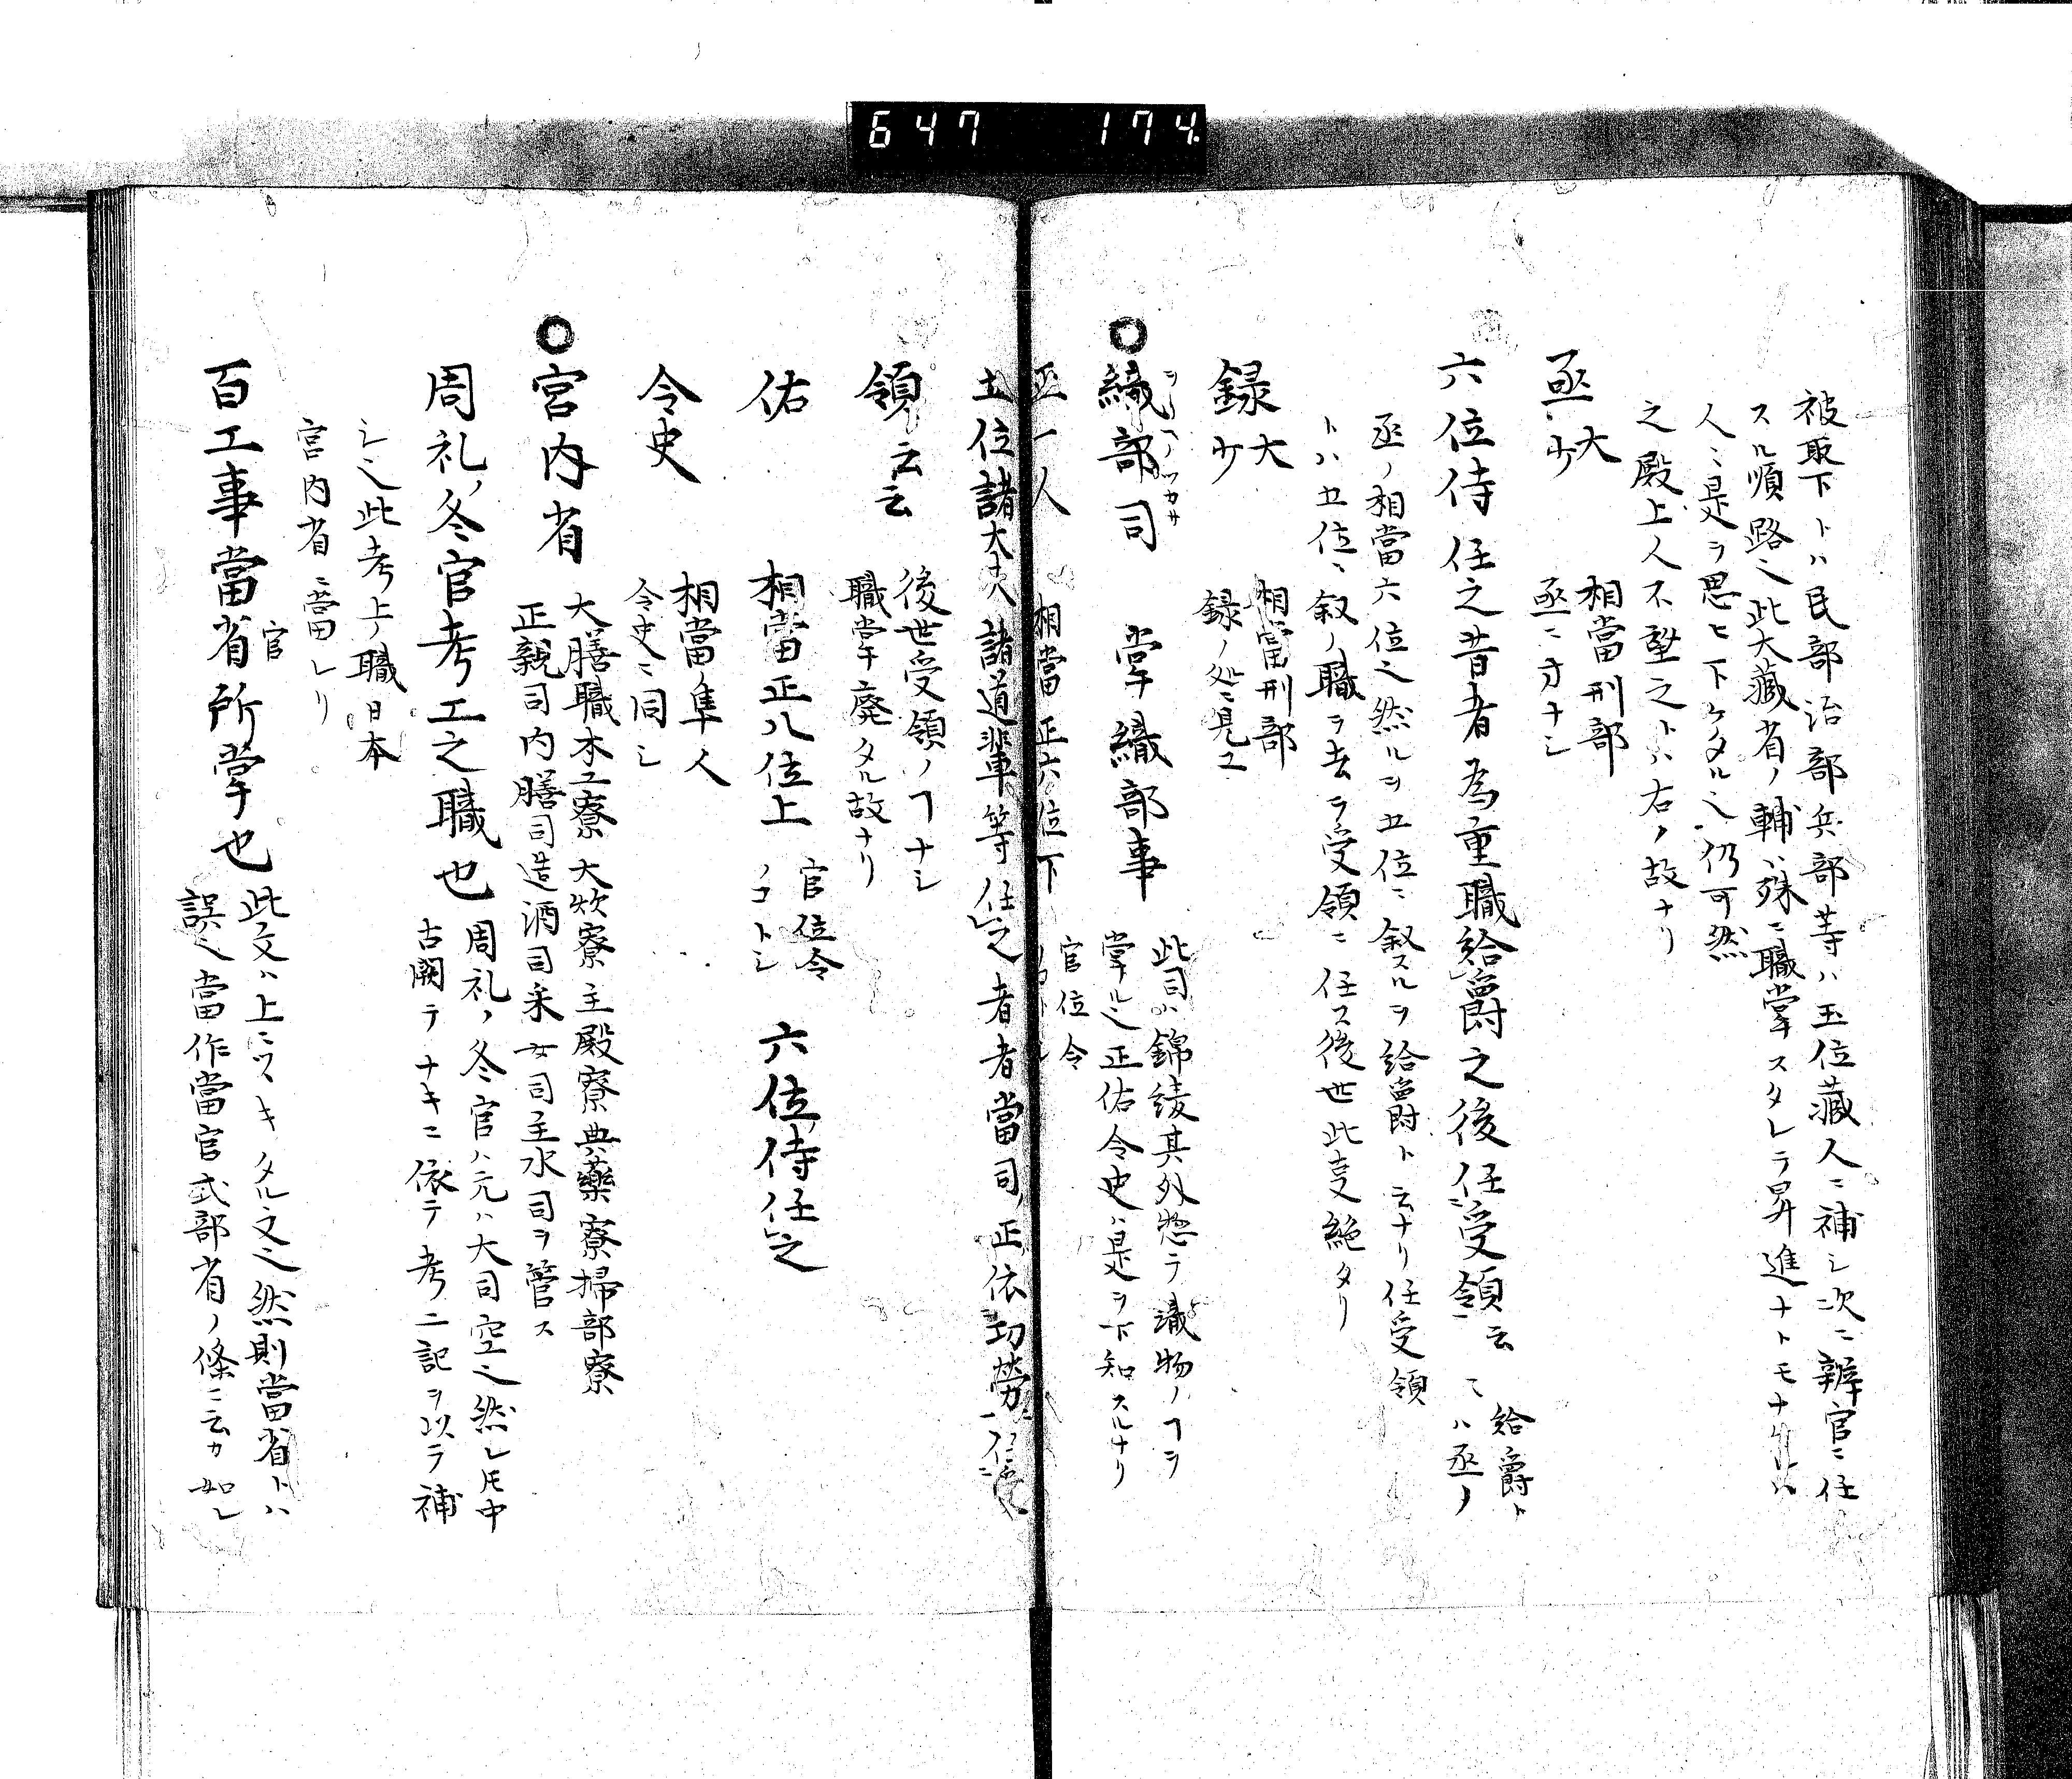 647 174.
被取下トハ民部治部兵部等ハ五位蔵人ニ補シ次ニ辨官ニ任
スル順路也此大藏省ノ輔ハ殊ニ職掌スタレテ昇進ナトモナ
人ミ是ヲ思ヒ下ケタル也仍可然
之殿上人不望之トハ右ノ故ナリ
丞 大少
相當刑部
丞ニ
六位侍任之昔者為重職給爵之後任受領云
給爵ト
ハ丞ノ
丞ノ相當六位也然ルヲ五位ニ叙スルヲ給爵ト云ナリ任受領
トハ五位ニ叙ノ職ヲ去テ受領ニ任ス後世此事絶タリ
録 大少
相當刑部
録ノ処ニ見ユ
○織部司 掌織部事
此司ハ錦綾其外惣テ織物ノヿヲ
掌ル也正佑令史ハ是ヲ下知スルナリ
正一人 相當正六位下
官位令
五位諸大夫諸道輩等任之者者當司正依功勞任受
領云云
後世受領ノヿナシ
職掌廃タル故ナリ
佑 相當正八位上
官位令
ノコトシ
六位侍任之
令史
相當隼人
令史ニ同シ
○宮内省
大膳職木工寮大炊寮主殿寮典藥寮掃部寮
正親司内膳司造酒司采女司主水司ヲ管ス
周礼ノ冬官考工之職也
周礼ノ冬官ハ元ハ大司空也然レ𪜈中
古闕テナキニ依テ考工記ヲ以テ補
シ也此考工ノ職日本
宮内省ニ當レリ
百工事當省所掌也
官
此文ハ上ニツヽキタル文也然則當省トハ
誤也當作當官式部省ノ條ニ云カ如シ